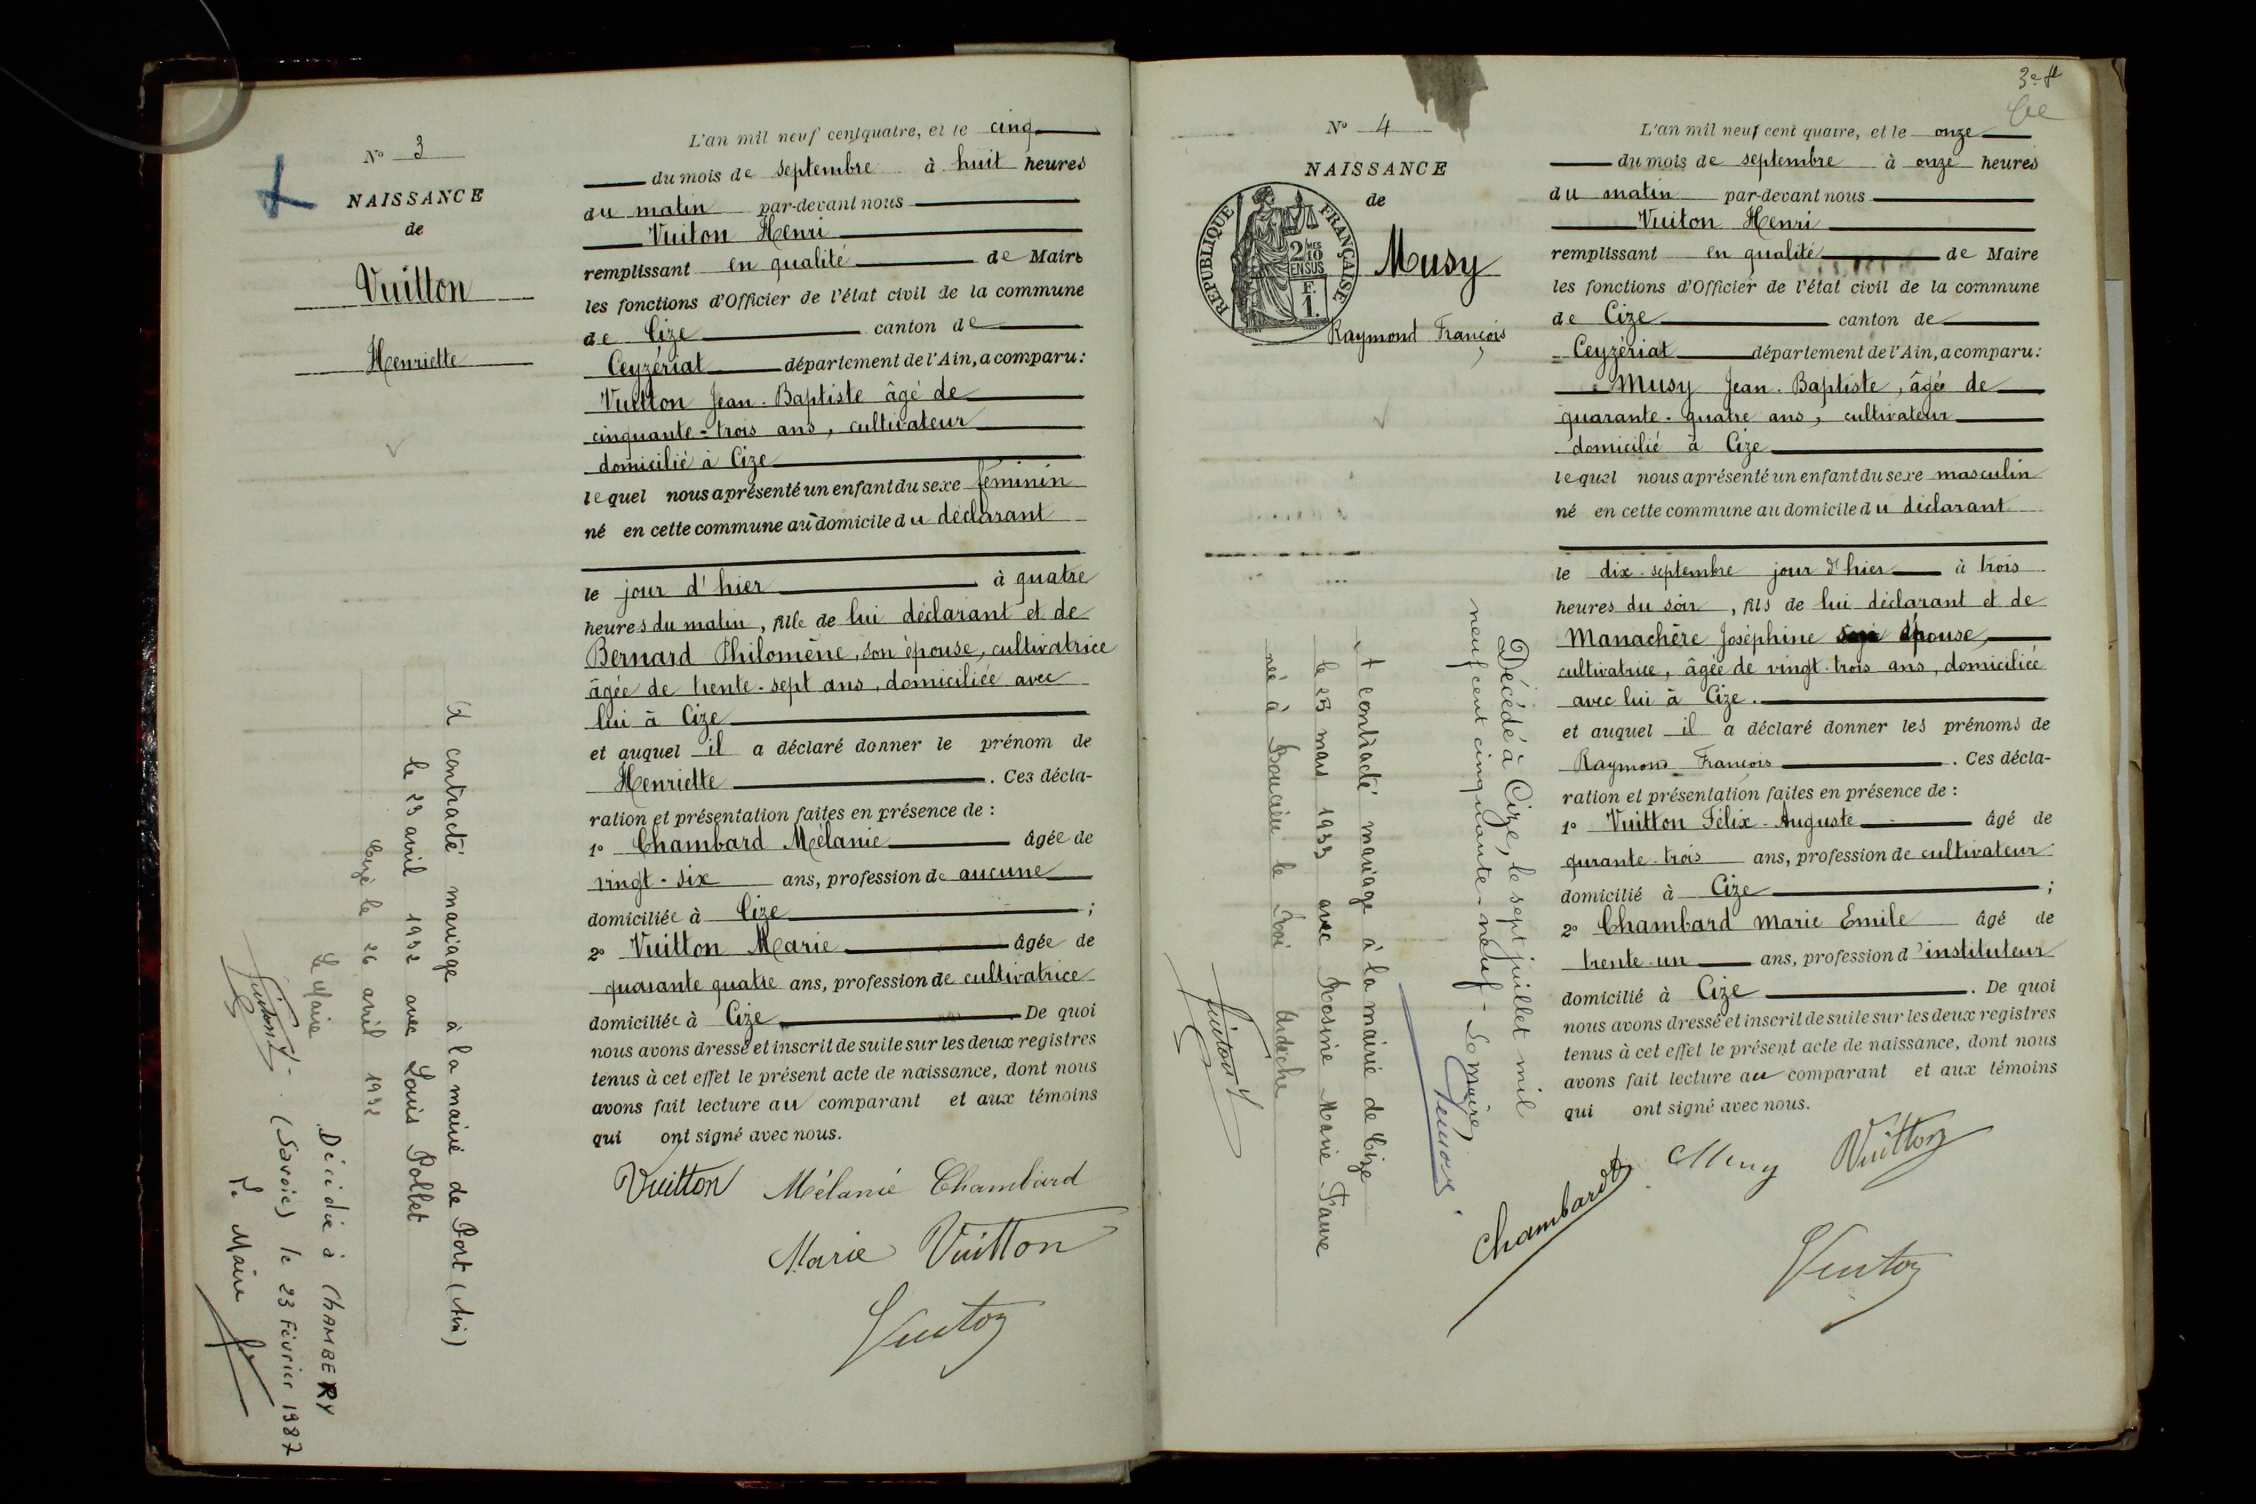 N° 3
NAISSANCE
de
Vuitton
Henriette
L'an mil neuf cent quatre, et le cinq
du mois de septembre à huit heures
du matin par-devant nous
Vuiton Henri
remplissant en qualité de Maire
les fonctions d'Officier de l'état civil de la commune
de Cize canton de
Ceyzériat département de l'Ain, a comparu :
Vuitton Jean-Baptiste âgé de
cinquante-trois ans, cultivateur
domicilié à Cize
lequel nous a présenté un enfant du sexe féminin
né en cette commune au domicile du déclarant
le jour d'hier à quatre
heures du matin, fille de lui déclarant et de
Bernard Philomène, son épouse, cultivatrice
âgée de trente-sept ans, domiciliée avec
lui à Cize
et auquel il a déclaré donner le prénom de
Henriette. Ces décla-
ration et présentation faites en présence de :
1° Chambard Mélanie âgée de
vingt-six ans, profession de aucune
domiciliée à Cize ;
2° Vuitton Marie âgée de
quarante quatre ans, profession de cultivatrice
domiciliée à Cize De quoi
nous avons dressé et inscrit de suite sur les deux registres
tenus à cet effet le présent acte de naissance, dont nous
avons fait lecture au comparant et aux témoins
qui ont signé avec nous.
Vuitton Mélanie Chambard
Marie Vuitton
Vuiton
A contracté mariage à la mairie de Port (Ain)
le 23 avril 1932 avec Louis Pollet
Cize le 26 avril 1932
Le Maire
Décédée à CHAMBERY
(Savoie) le 23 Février 1987
Le Maire
3e f
N° 4
NAISSANCE
de
REPUBLIQUE FRANÇAISE
2 MES
10
EN SUS
F.
1.
Musy
Raymond François
L'an mil neuf cent quatre, et le onze
du mois de septembre à onze heures
du matin par-devant nous
Vuiton Henri
remplissant en qualité de Maire
les fonctions d'Officier de l'état civil de la commune
de Cize canton de
Ceyzériat département de l'Ain, a comparu :
Musy Jean-Baptiste, âgé de
quarante-quatre ans, cultivateur
domicilié à Cize
lequel nous a présenté un enfant du sexe masculin
né en cette commune au domicile du déclarant
le dix septembre jour d'hier à trois
heures du soir, fils de lui déclarant et de
Manachère Joséphine son épouse,
cultivatrice, âgée de vingt-trois ans, domiciliée
avec lui à Cize.
et auquel il a déclaré donner les prénoms de
Raymond François. Ces décla-
ration et présentation faites en présence de :
1° Vuitton Félix-Auguste âgé de
qurante-trois ans, profession de cultivateur
domicilié à Cize ;
2° Chambard Marie Emile âgé de
trente-un ans, profession d'instituteur
domicilié à Cize. De quoi
nous avons dressé et inscrit de suite sur les deux registres
tenus à cet effet le présent acte de naissance, dont nous
avons fait lecture au comparant et aux témoins
qui ont signé avec nous.
Chambard Musy Vuitton
Vuiton
Décédé à Cize, le sept juillet mil
neuf cent cinquante-neuf - Le maire,
A contracté mariage à la mairie de Cize
le 25 mars 1933 avec Rosine Marie Faure
née à le Roi Ardèche